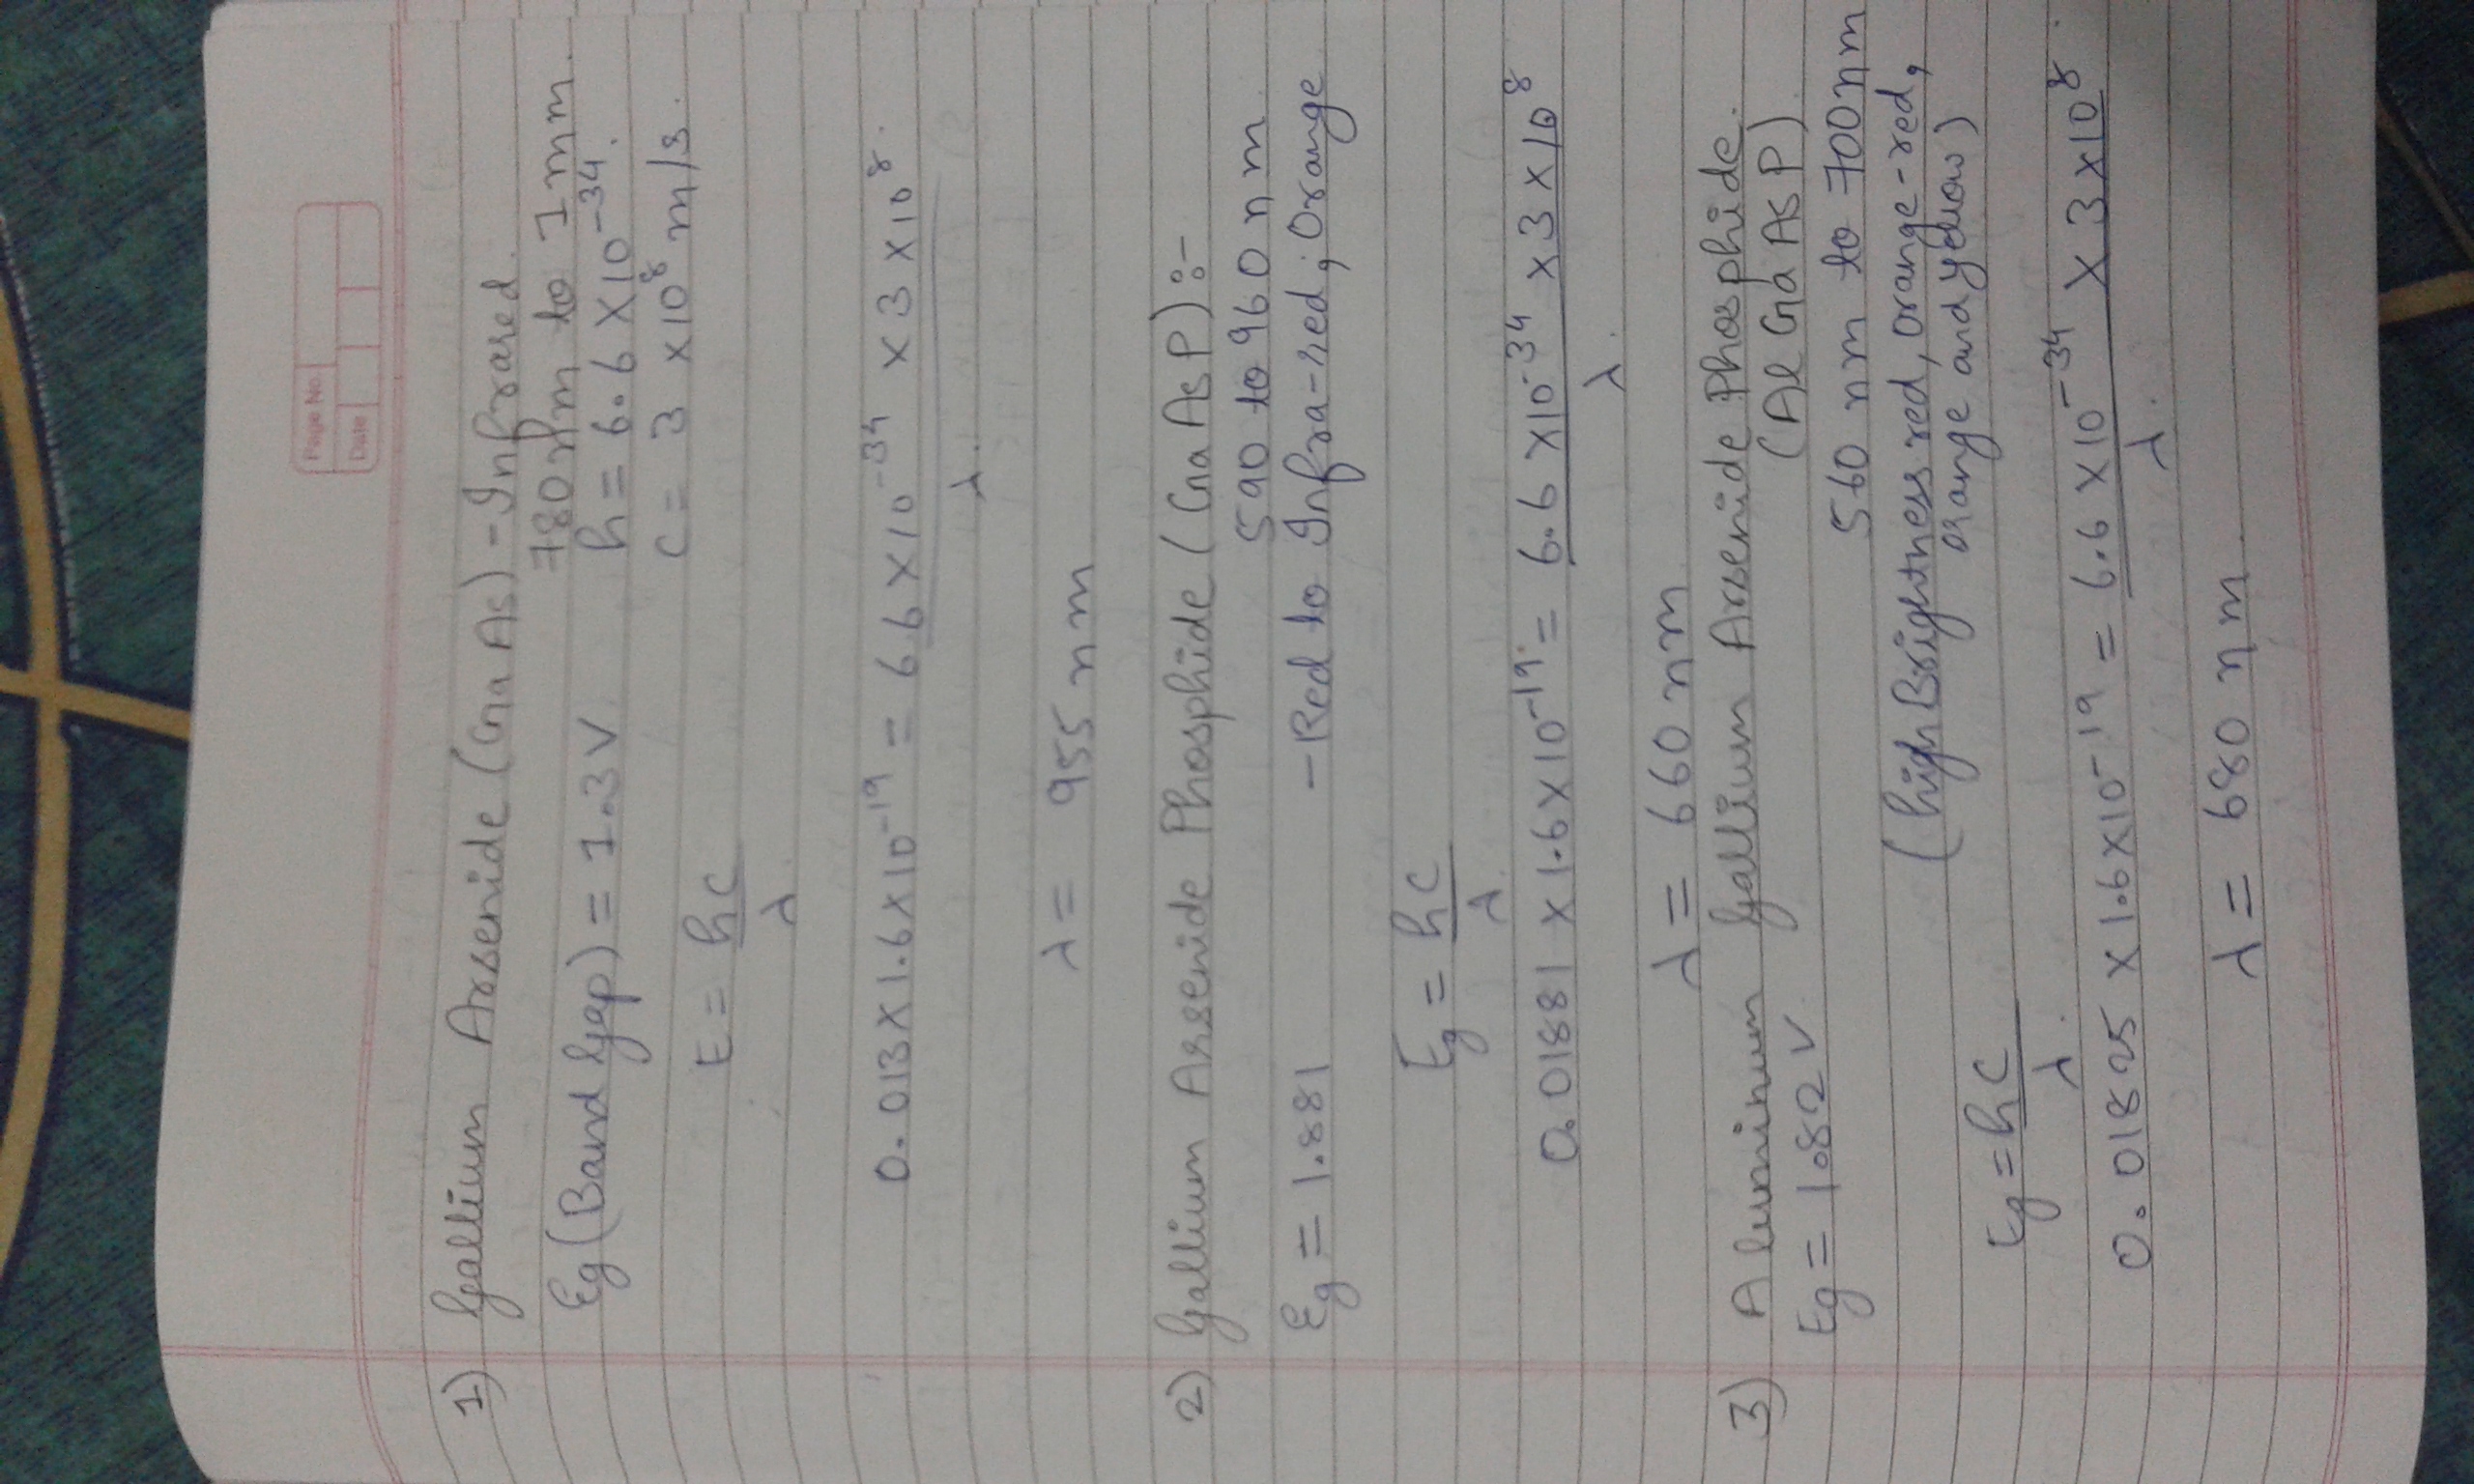 Page No.
Date
1) Gallium Arsenide (GaAs) - Infrared.
780nm to 1mm.
Eg (Band Gap) = 1.3V
h = 6.6 X10⁻³⁴.
c = 3 x10⁸ m/s.
E = hc
λ.
0.013 X 1.6 X 10⁻¹⁹ = 6.6 X 10⁻³⁴ X 3 X 10⁸.
λ.
λ = 955 nm
2) Gallium Arsenide Phosphide (GaAsP):-
590 to 960 nm
Eg = 1.881 - Red to Infra-red; Orange
Eg = hc
λ.
0.01881 x 1.6X10⁻¹⁹ = 6.6 X10⁻³⁴ x 3 x 10⁸
λ.
λ = 660 nm
3) Aluminum Gallium Arsenide Phosphide.
(AlGaAsP)
Eg = 1.82 V
560 nm to 700nm
(high Brightness red, orange-red,
orange and yellow)
Eg = hc
λ.
0.01825 x 1.6x10⁻¹⁹ = 6.6 X10⁻³⁴ X 3x10⁸
λ.
λ = 680 nm